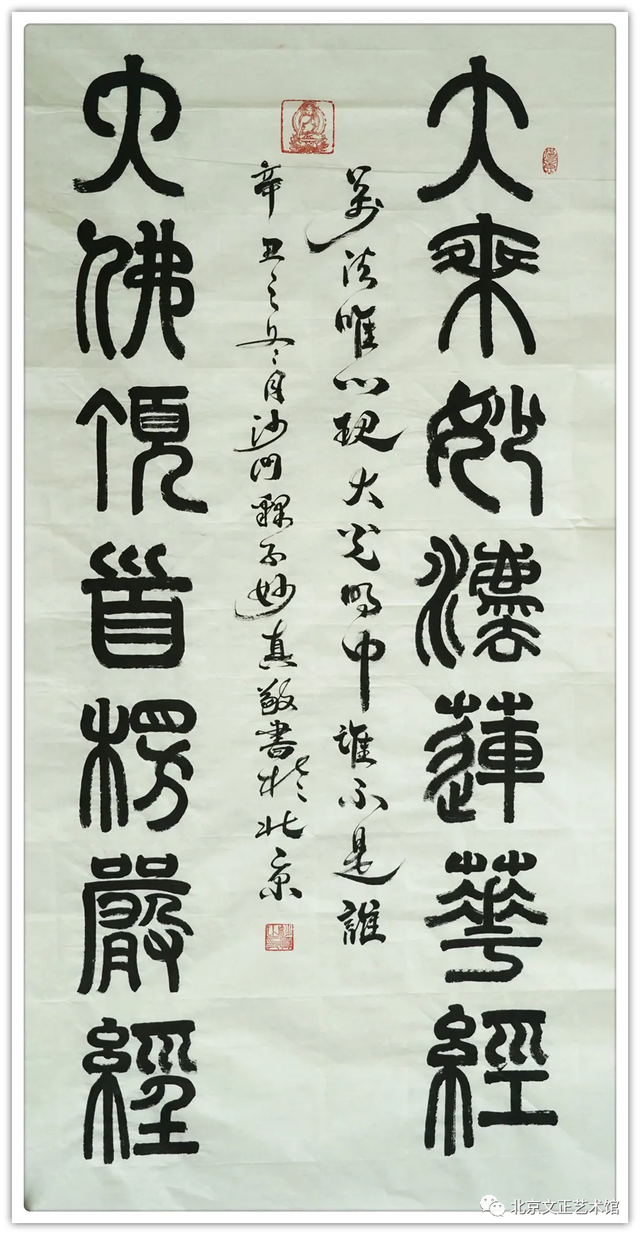 大乘妙灋蓮華經
萬法唯心現大光明中誰不是誰
辛丑之冬月沙門釋子妙真敬書於北京
大佛頂首楞嚴經
北京文正艺术馆